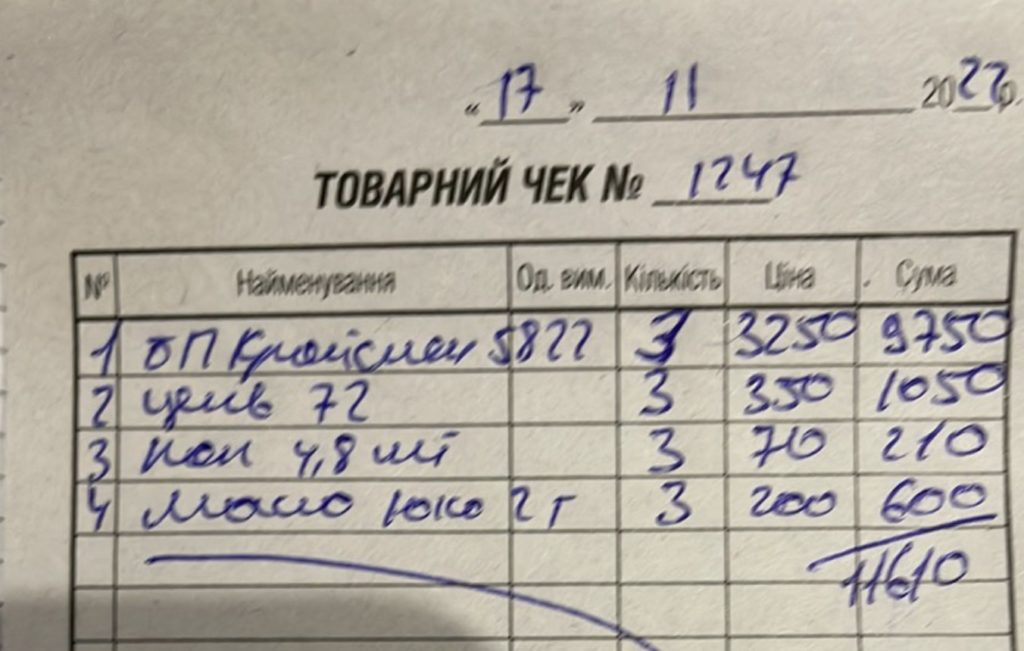 « 17 » 11 2022 р.
ТОВАРНИЙ ЧЕК № 1247
№ Найменування Од. вим. Кількість Ціна Сума
1 БП Кройсмен 5822 3 3250 9750
2 72 3 350 1050
3 4,8 мт 3 70 210
4 Масло Юко 2т 3 200 600
11610